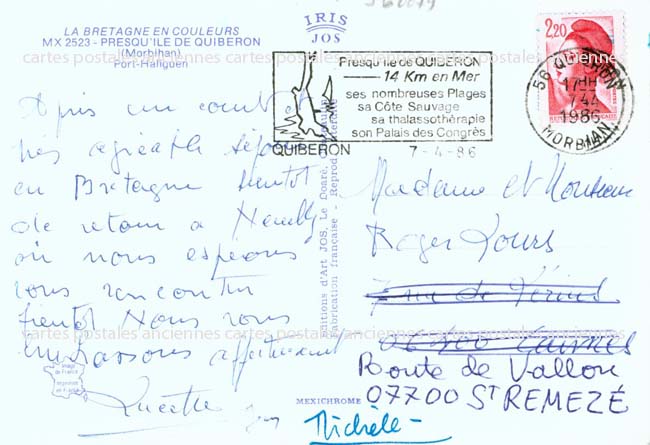 LA BRETAGNE EN COULEURS
MX 2523 - PRESQU'ILE DE QUIBERON
(Morbihan)
Port-Haliguen
IRIS
JOS
Presqu'île de QUIBERON
14 Km en Mer
ses nombreuses Plages
sa Côte Sauvage
sa thalassothérapie
son Palais des Congrès
QUIBERON
7-4-86
2,20
56 QUIBERON
17H
7-4
1986
MORBIHAN
Après un court et
très agréable séjour
en Bretagne bientôt
de retour à Neuilly
où nous espérons
vous rencontrer
bientôt Nous vous
embrassons affectueusement
Lucette
Michèle
Editions d'Art JOS, Le Doaré,
Fabrication française Reprod. interdite
Image de France
Imprimée en France
MEXICHROME
Madame et Monsieur
Roger Tours
7 rue de
06400 Cannes
Boute de Vallon
07700 ST REMEZÉ
cartes postales anciennes cartes postales anciennes cartes postales anciennes
cartes postales anciennes cartes postales anciennes cartes postales anciennes